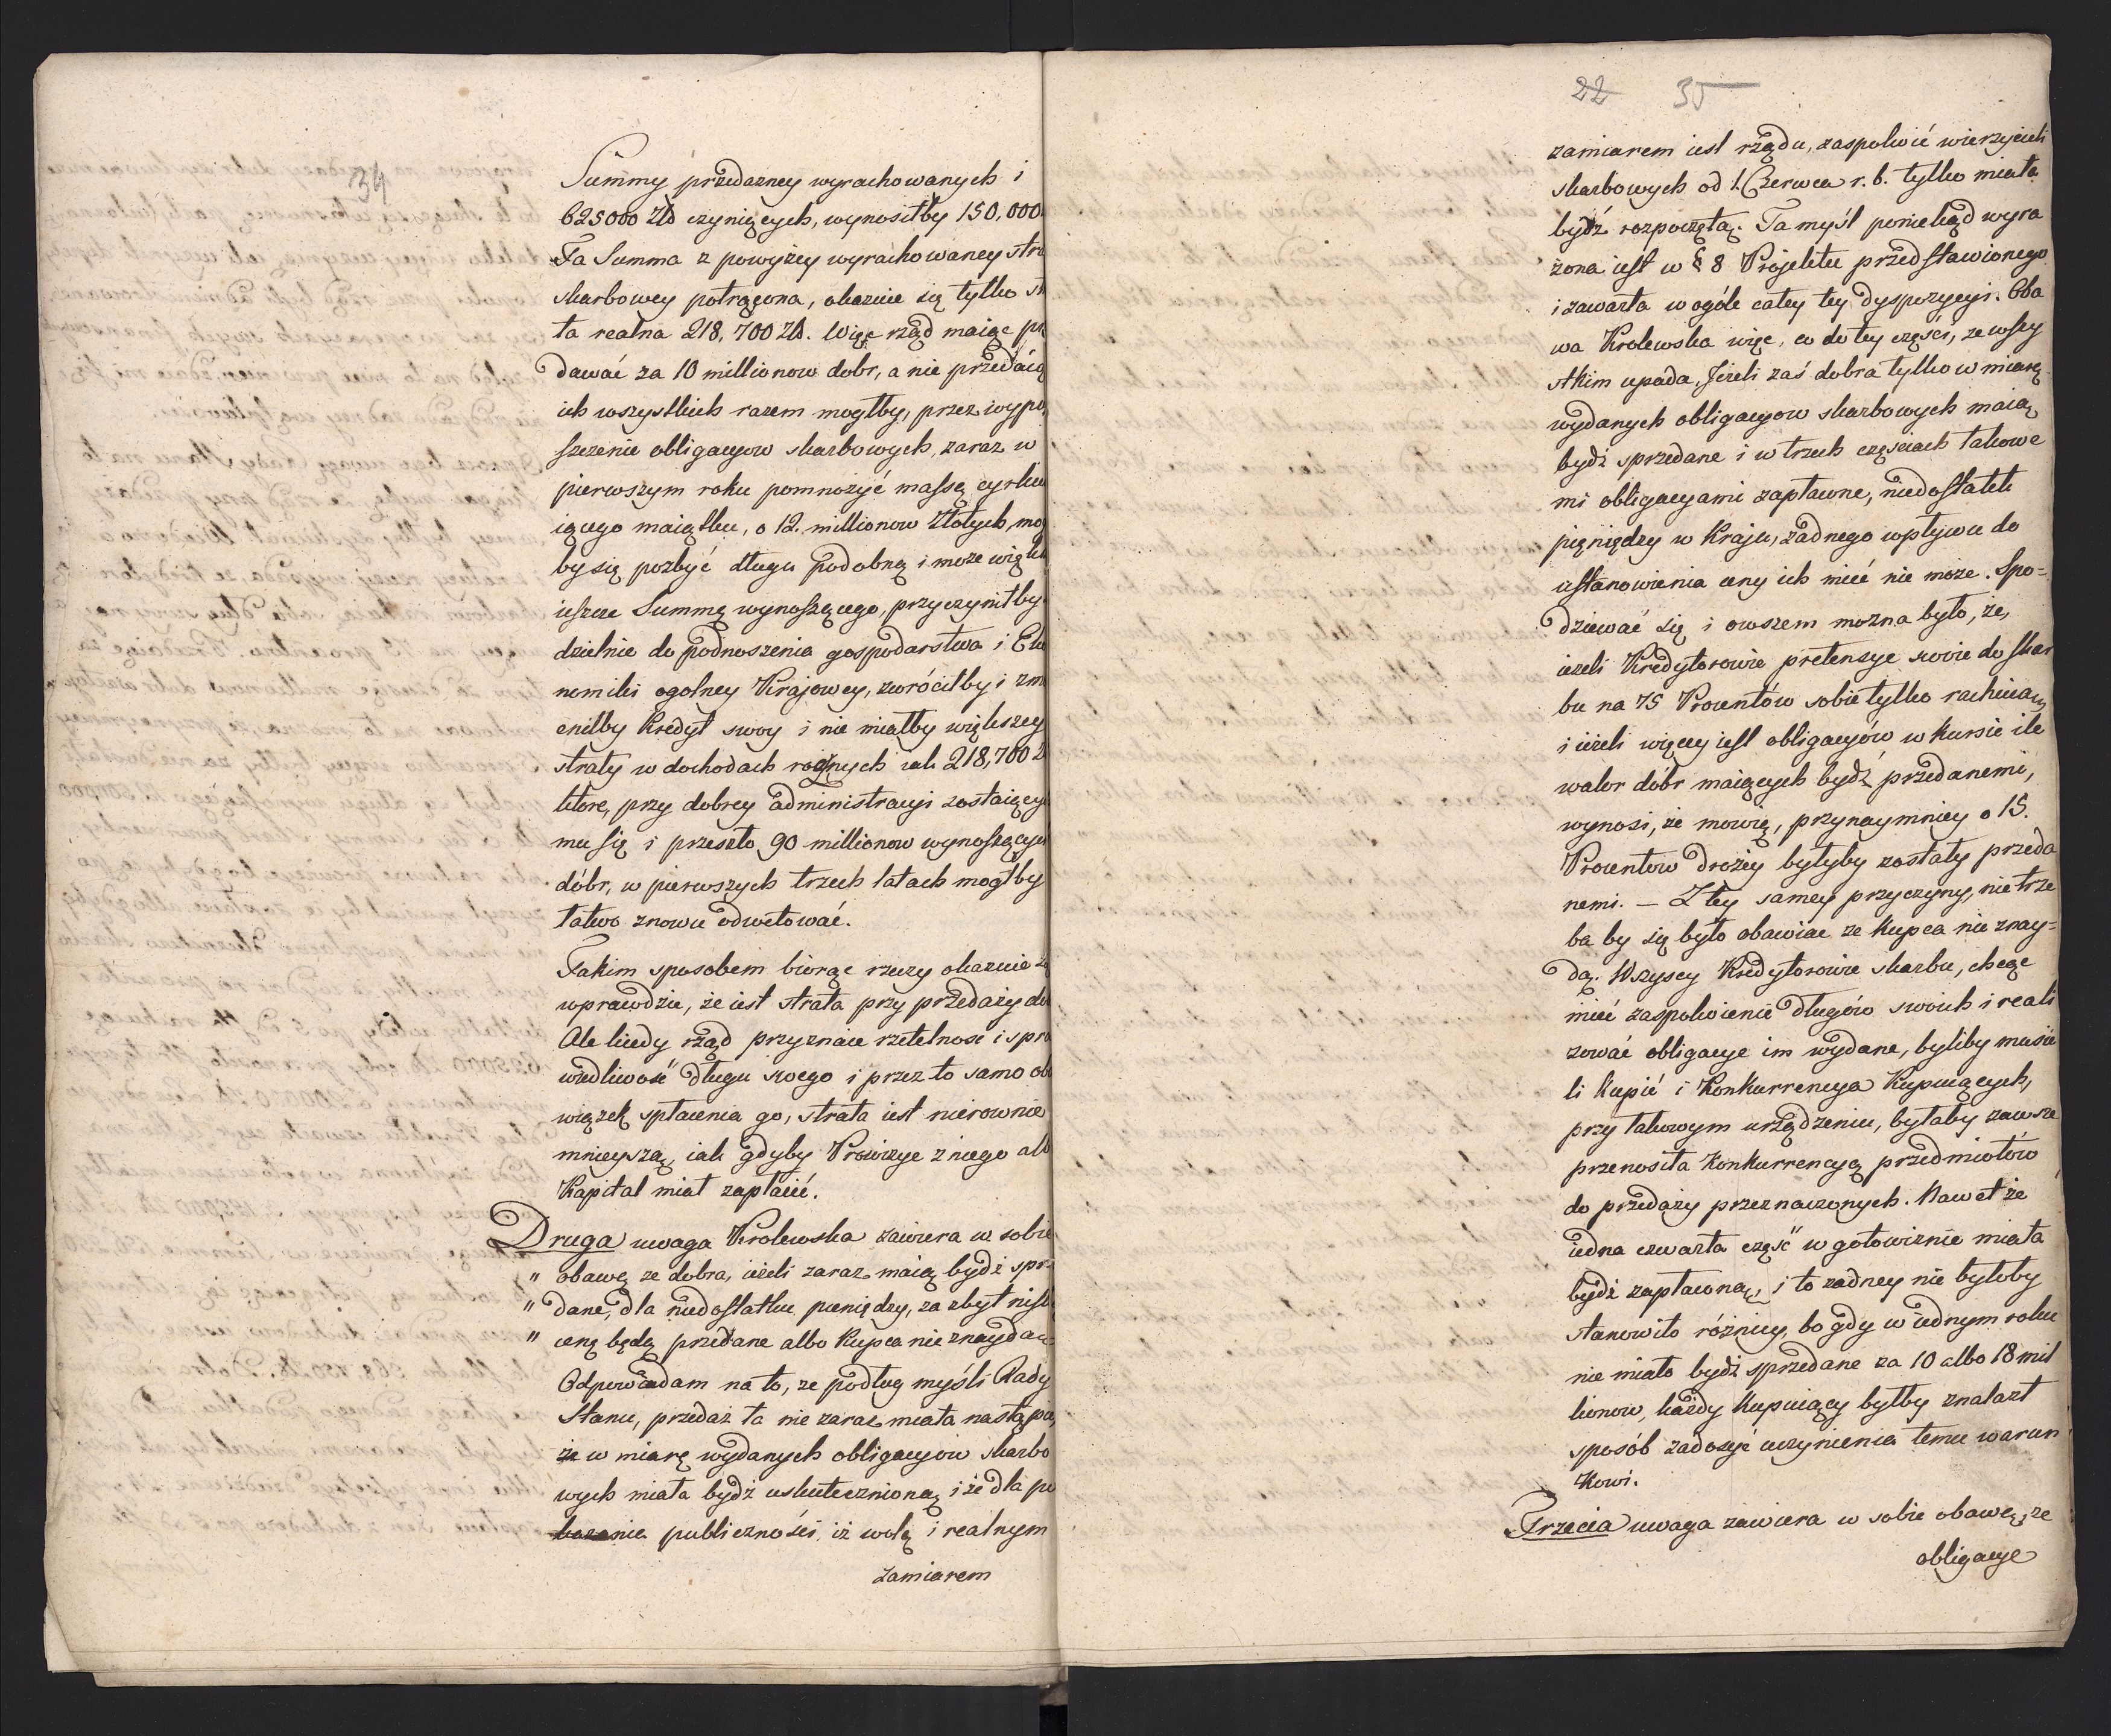 34
Summy przedazney wyrachowanych i
625000 Zł czyniących, wynosiłby 150,000
Ta Summa z powyżey wyrachowaney
skarbowey potrącona, okazuie się tylko
ta realna 218,700 Zł. Więc rząd maiąc
dawać za 10 millionow dobr, a nie
ich wszystkich razem mogłby, przez
szczenie obligacyow skarbowych, zaraz w
pierwszym roku pomnożyć massę
iącego maiątku, o 12. millionow Złotych,
by się pozbyć długu podobną i może
ieszcze Summę wynoszącego, przyczyniłby
dzielnie do podnoszenia gospodarstwa i
nomiki ogolney Krajowey, zwróciłby i
eniłby Kredyt swoy i nie miałby większey
straty w dochodach rocznych iak 218,700
którą, przy dobrey administracyi
mu się i przeszło 90 millionow
dóbr, w pierwszych trzech latach mogłby
łatwo znowu odwetować.
Takim sposobem biorąc rzeczy okazuie
wprawdzie, że iest strata przy przedaży
Ale kiedy rząd przyznaie rzetelnosc i spra
wiedliwość długu swego i przez to samo obo
wiązek spłacenia go, strata iest nierownie
mnieyszą, iak gdyby Prowizye z niego alb
Kapitał miał zapłacić.
Druga uwaga Krolewska zawiera w sobie
" obawę ze dobra, ieżeli zaraz maią bydź spr
" dane, dla niedostatku pieniędzy, za zbyt
" cenę będą przedane albo Kupca nie
Odpowiadam na to, ze podług myśli Rady
Stanu, przedaż ta nie zaraz miała
że w miarę wydanych obligacyow skarbo
wych miała bydź uskutecznioną i że dla po
kazania publiczności, iż wolą i realnym
zamiarem
22 35
zamiarem iest rządu, zaspokoić wierzycieli
skarbowych od 1. Czerwca r. b. tylko miała
bydź rozpoczętą. Ta myśl poniekąd wyra
żona iest w § 8 Projektu przedstawionego
i zawarta w ogóle całey tey dyspozycyi. Oba
wa Krolewska więc, co do tey części, ze wszy
stkim upada. Jeżeli zaś dobra tylko w miarę
wydanych obligacyow skarbowych maią
bydź sprzedane i w trzech częściach takowe
mi obligacyami zapłacone, niedostatek
pieniędzy w Kraju, żadnego wpływu do
ustanowienia ceny ich mieć nie może. Spo=
dziewać się i owszem można było, że,
ieżeli Kredytorowie pretensye swoie do skar
bu na 75 Procentów sobie tylko rachuią,
i ieżeli więcey iest obligacyów w kursie ile
walor dóbr maiących bydź przedanemi,
wynosi, że mowię, przynaymniey o 15.
Procentow drożey byłyby zostały przeda
nemi. — Z tey samey przyczyny, nie trze
ba by się było obawiac ze Kupca nie znay=
dą. Wszyscy Kredytorowie skarbu, chcąc
mieć zaspokoienie długów swoich i reali
zować obligacye im wydane, byliby musie
li kupić i Konkurrencya Kupuiących,
przy takowym urządzeniu, byłaby zawsze
przenosiła Konkurrencyą przedmiotów
do przedaży przeznaczonych. Nawet że
iedna czwarta część w gotowiznie miała
bydź zapłaconą, i to żadney nie byłoby
stanowiło różnicy, bo gdy w iednym roku
nie miało bydź sprzedane za 10 albo 18 mil
lionow, każdy kupuiący byłby znalazł
sposób zadosyć uczynienia temu warun
Kowi.
Trzecia uwaga zawiera w sobie obawę, że
obligacye